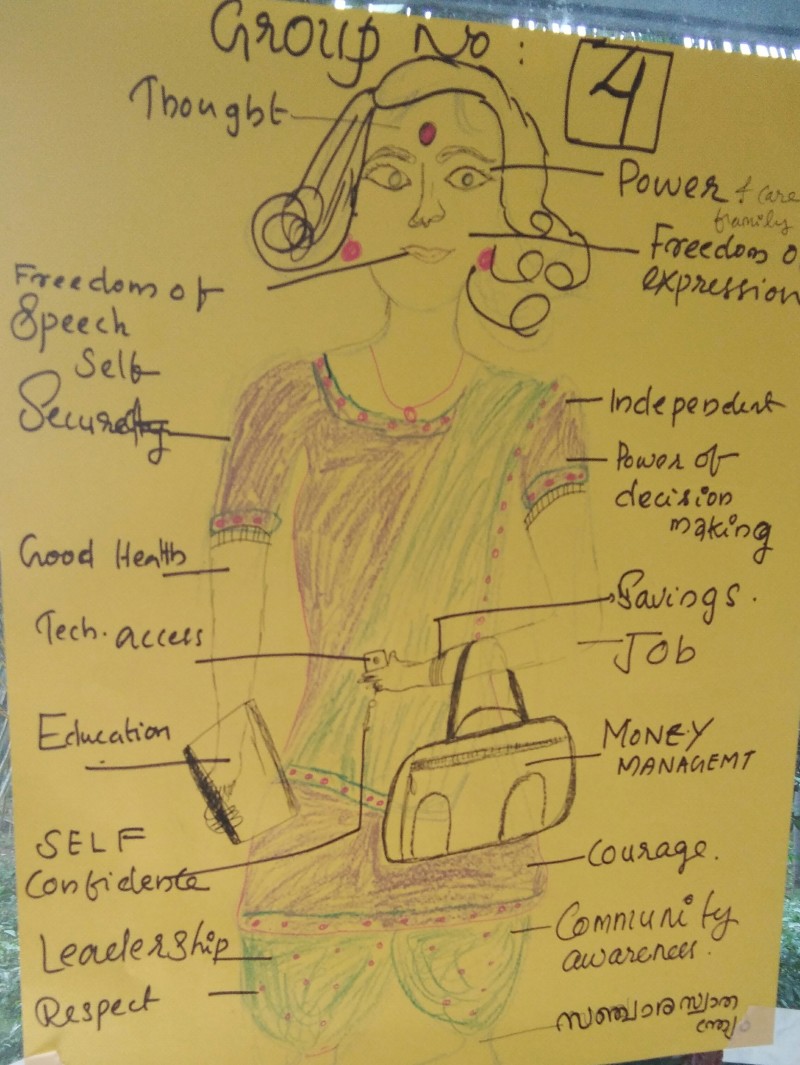 Group No: 4
Thought
Power & care
family
Freedom o
expression
Freedom of
Speech
Self
Security
Independent
Power of
decision
making
Good Health
Savings.
Tech. access
Job
Education
MONEY
MANAGEMT
SELF
Confidence
Courage.
Leadership
Community
awareness.
Respect
സഞ്ചാരസ്വാത
ന്ത്ര്യം